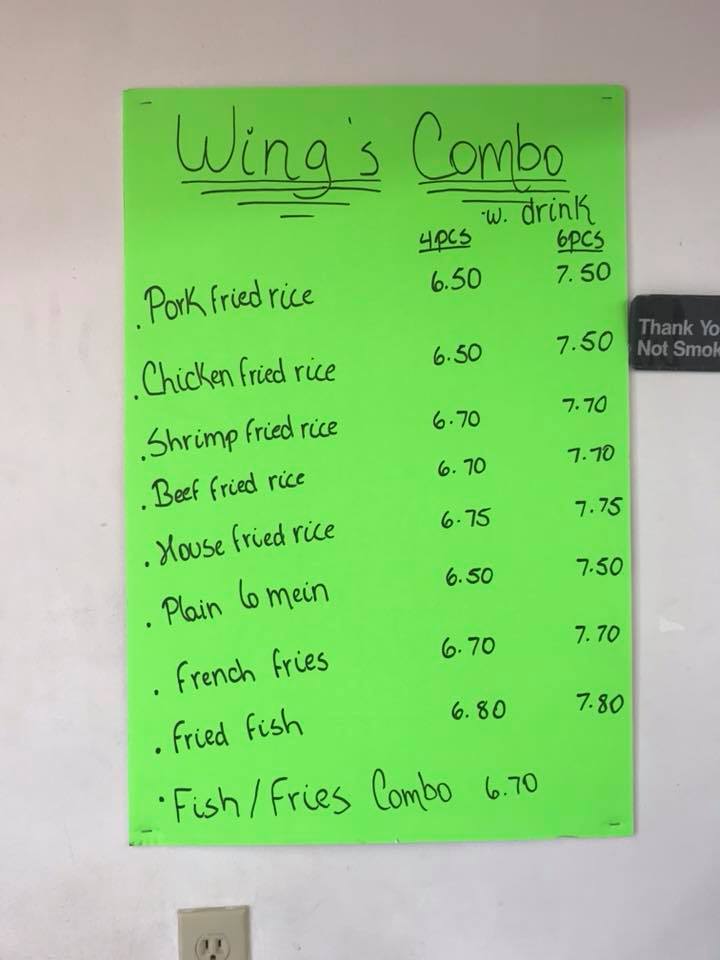 Wing's Combo
w. drink
4pcs 6pcs
. Pork fried rice 6.50 7.50
. Chicken fried rice 6.50 7.50
. Shrimp fried rice 6.70 7.70
. Beef fried rice 6.70 7.70
. House fried rice 6.75 7.75
. Plain lo mein 6.50 7.50
. French fries 6.70 7.70
. Fried fish 6.80 7.80
. Fish/Fries Combo 6.70
Thank Yo
Not Smok